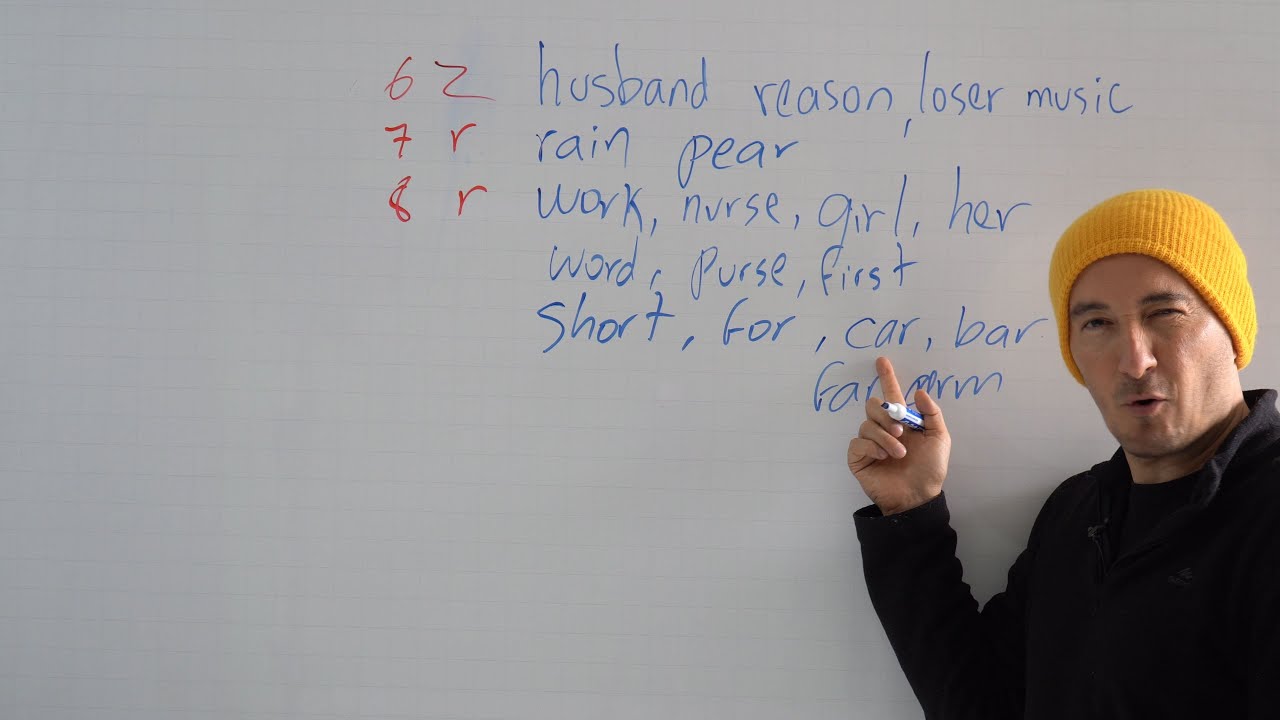 6 z husband reason, loser music
7 r rain pear
8 r work, nurse, girl, her
word, purse, first
short, for, car, bar
far arm